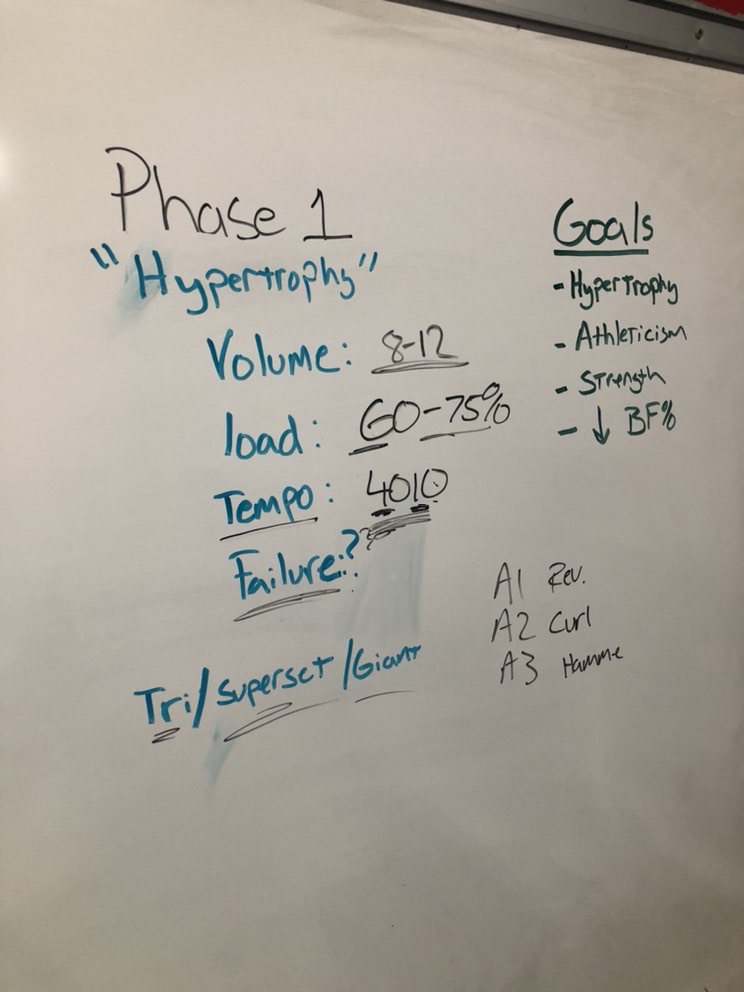 Phase 1
"Hypertrophy"
Volume: 8-12
load: 60-75%
Tempo: 4010
Failure:?
Tri/superset/Giant
Goals
- Hypertrophy
- Athleticism
- Strength
- ↓ BF%
A1 Rev.
A2 Curl
A3 Hamme